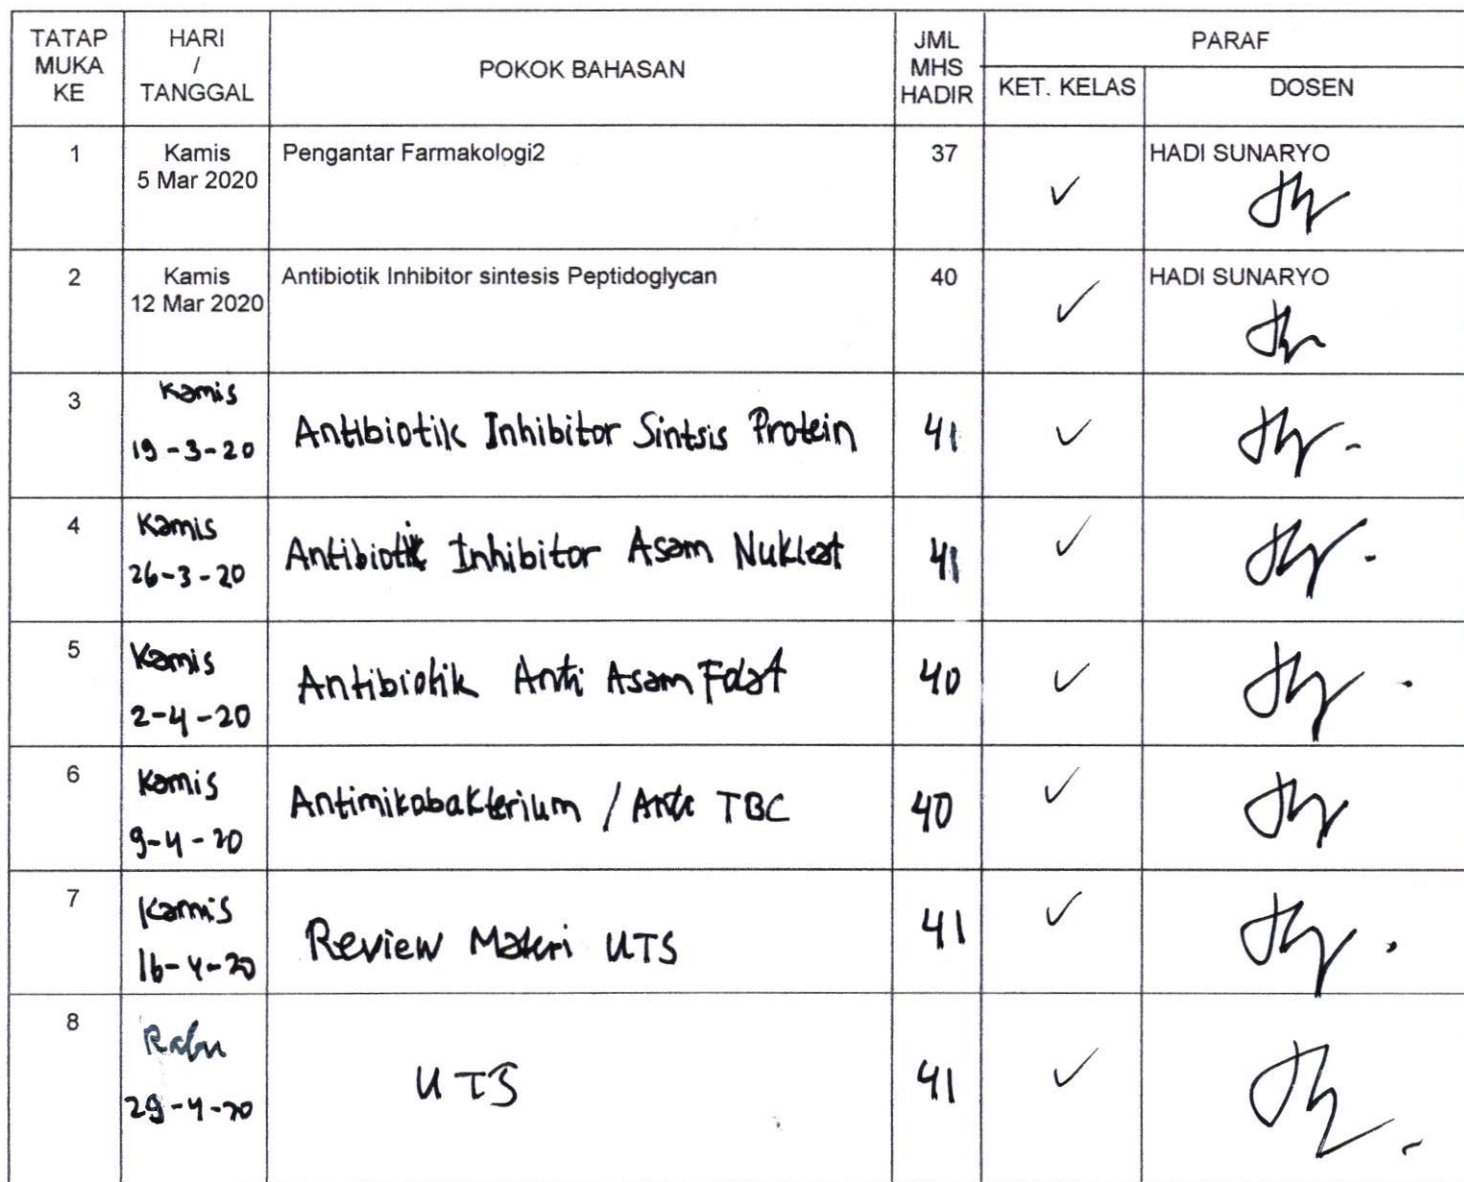 TATAP MUKA KE
HARI / TANGGAL
POKOK BAHASAN
JML MHS HADIR
PARAF
KET. KELAS
DOSEN
1
Kamis
5 Mar 2020
Pengantar Farmakologi2
37
HADI SUNARYO
2
Kamis
12 Mar 2020
Antibiotik Inhibitor sintesis Peptidoglycan
40
HADI SUNARYO
3
Kamis
19-3-20
Antibiotik Inhibitor Sintsis Protein
41
4
Kamis
26-3-20
Antibiotik Inhibitor Asam Nukleat
41
5
Kamis
2-4-20
Antibiotik Anti Asam Folat
40
6
Kamis
9-4-20
Antimikobakterium / Anti TBC
40
7
Kamis
16-4-20
Review Materi UTS
41
8
Rabu
29-4-20
UTS
41